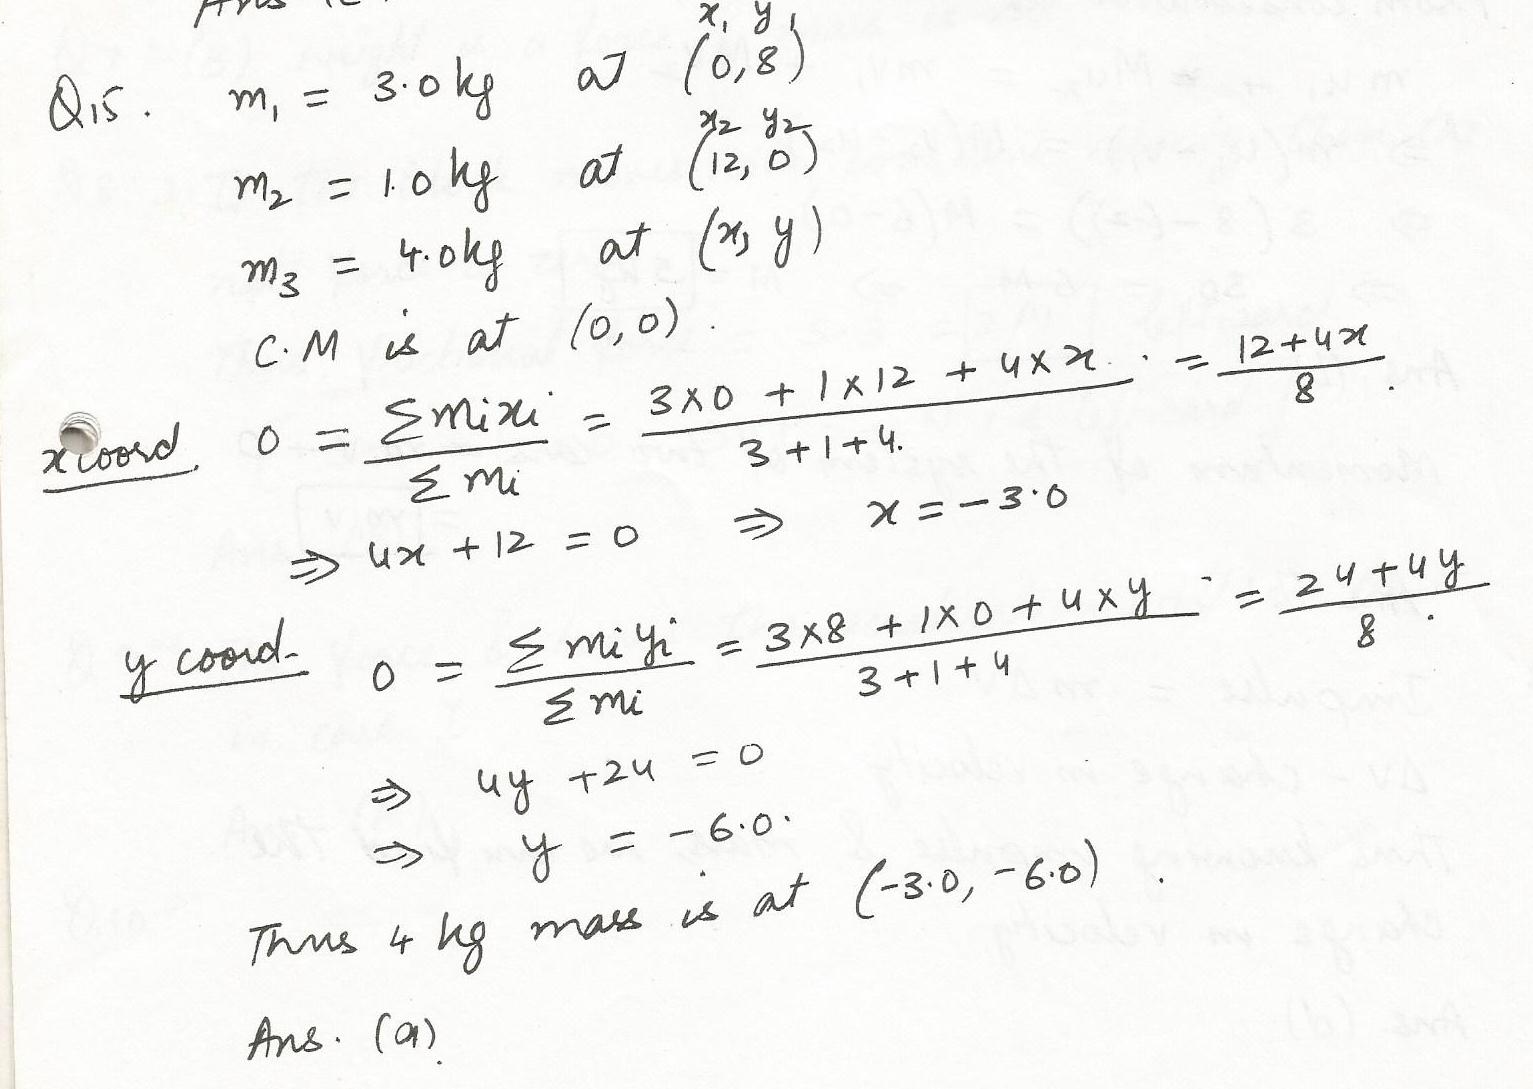 x₁ y₁
Q15. m₁ = 3.0 kg at (0,8)
x₂ y₂
m₂ = 1.0 kg at (12, 0)
m₃ = 4.0 kg at (x, y)
C.M is at (0,0).
x coord. 0 = Σmixi / Σmi = 3×0 + 1×12 + 4×x / 3+1+4. = 12+4x / 8.
⇒ 4x + 12 = 0 ⇒ x = -3.0
y coord. 0 = Σmiyi / Σmi = 3×8 + 1×0 + 4×y / 3+1+4 = 24+4y / 8.
⇒ 4y + 24 = 0
⇒ y = -6.0.
Thus 4 kg mass is at (-3.0, -6.0).
Ans. (a)